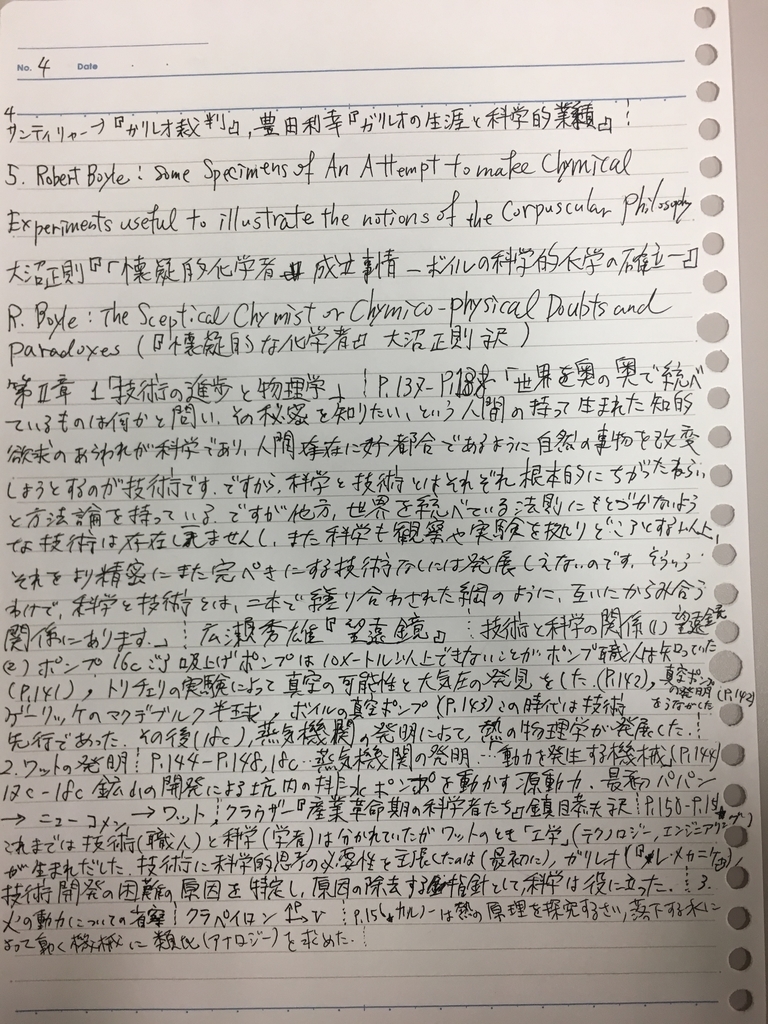 No. 4 Date
4
サンティリャーナ『ガリレオ裁判』, 豊田利幸『ガリレオの生涯と科学的業績』⋮
5. Robert Boyle: Some Specimens of An Attempt to make Chymical
Experiments useful to illustrate the notions of the Corpuscular Philosophy
大沼正則『「懐疑的化学者」成立事情 ーボイルの科学的化学の確立ー』
R. Boyle: The Sceptical Chymist or Chymico-physical Doubts and
paradoxes (『懐疑的な化学者』大沼正則 訳)
第Ⅱ章 1「技術の進歩と物理学」⋮P.137-P.138「世界を奥の奥で統べ
ているものは何かと問い、その秘密を知りたい、という人間の持って生まれた知的
欲求のあらわれが科学であり、人間存在に好都合であるように自然の事物を改変
しようとするのが技術です。ですから、科学と技術とはそれぞれ根本的にちがったねらい
と方法論を持っている。ですが他方、世界を統べている法則にもとづかないよう
な技術は存在しえませんし、また科学も観察や実験を拠りどころとする以上、
それをより精密にまた完ぺきにする技術なしには発展しえないのです。そういう
わけで、科学と技術とは、二本で縒り合わされた綱のように、互いにからみ合う
関係にあります。」⋮広瀬秀雄『望遠鏡』⋮技術と科学の関係(1)望遠鏡
(2)ポンプ 16cごろ吸上げポンプは10メートル以上できないことがポンプ職人は知っていた
(P.141), トリチェリの実験によって真空の可能性と大気圧の発見をした.(P.142), 真空ポンプの発明(P.142)をうながした
ゲーリッケのマクデブルク半球 ボイルの真空ポンプ(P.143)この時代は技術
先行であった. その後(18c), 蒸気機関の発明によって, 熱の物理学が発展した.⋮
2.ワットの発明⋮P.144-P.148, 18c…蒸気機関の発明…動力を発生する機械(P.144)
17c-18c 鉱山の開発による坑内の排水ポンプを動かす源動力. 最初パパン
→ニューコメン→ワット⋮クラウザー『産業革命期の科学者たち』鎮目恭夫訳⋮P.150-P.15
これまでは技術(職人)と科学(学者)は分かれていたがワットのとき「工学」(テクノロジー,エンジニアリング)
が生まれだした. 技術に科学的思考の必要性を主張したのは(最初に), ガリレオ(『レ・メカニケ』),
技術開発の困難の原因を特定し, 原因の除去する指針として科学は役に立った.⋮3.
火の動力についての省察⋮クラペイロン ↑P→V ⋮P.156 カルノーは熱の原理を探究するさい, 落下する水に
よって動く機械に類比(アナロジー)を求めた.⋮